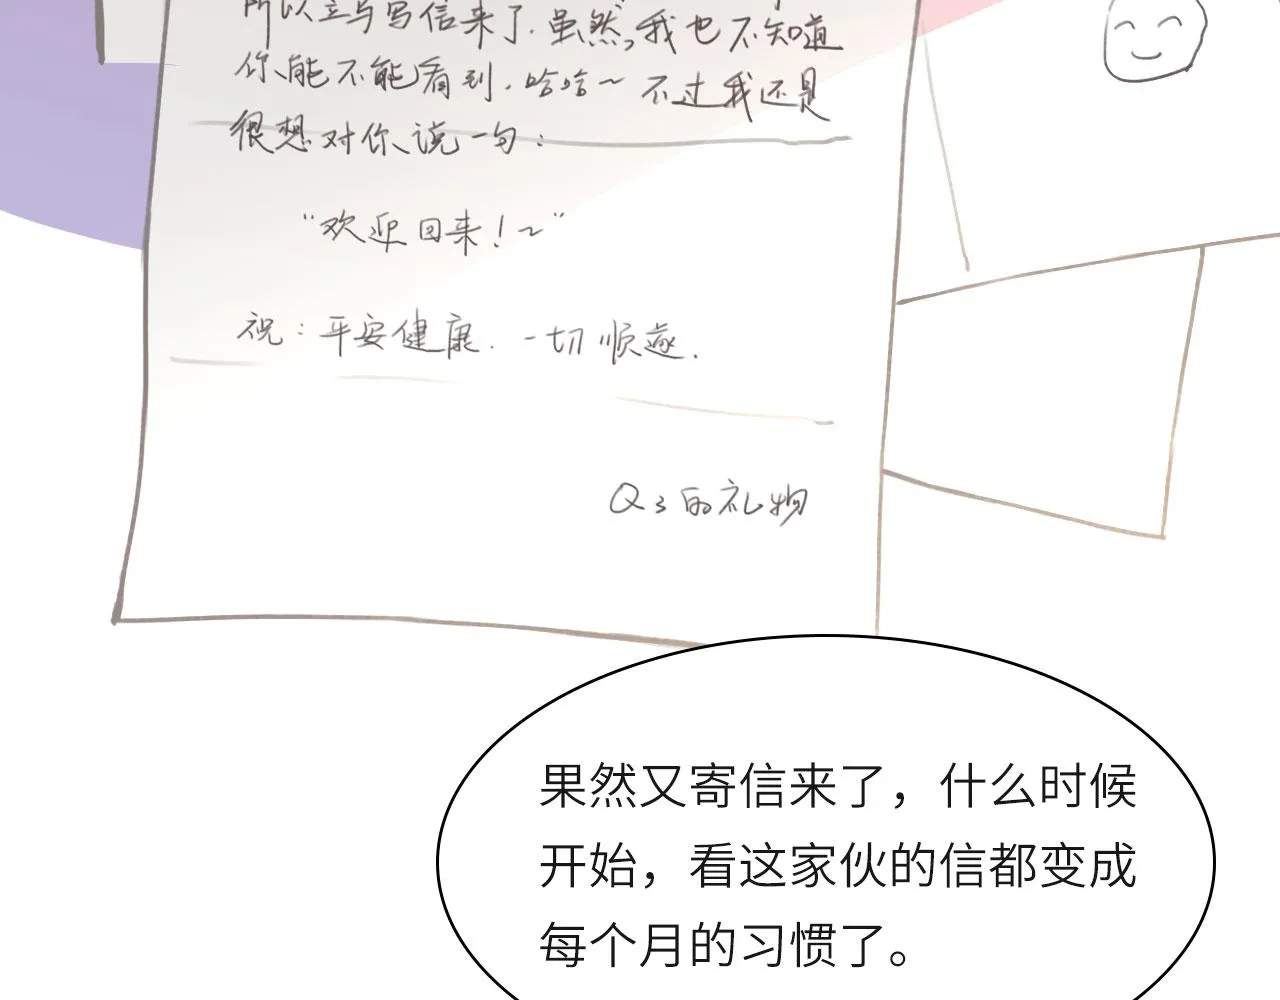 所以立马写信来了.虽然,我也不知道
你能不能看到.哈哈~不过我还是
很想对你说一句:
"欢迎回来!~"
祝:平安健康.一切顺遂.
Q3的礼物
果然又寄信来了，什么时候
开始，看这家伙的信都变成
每个月的习惯了。